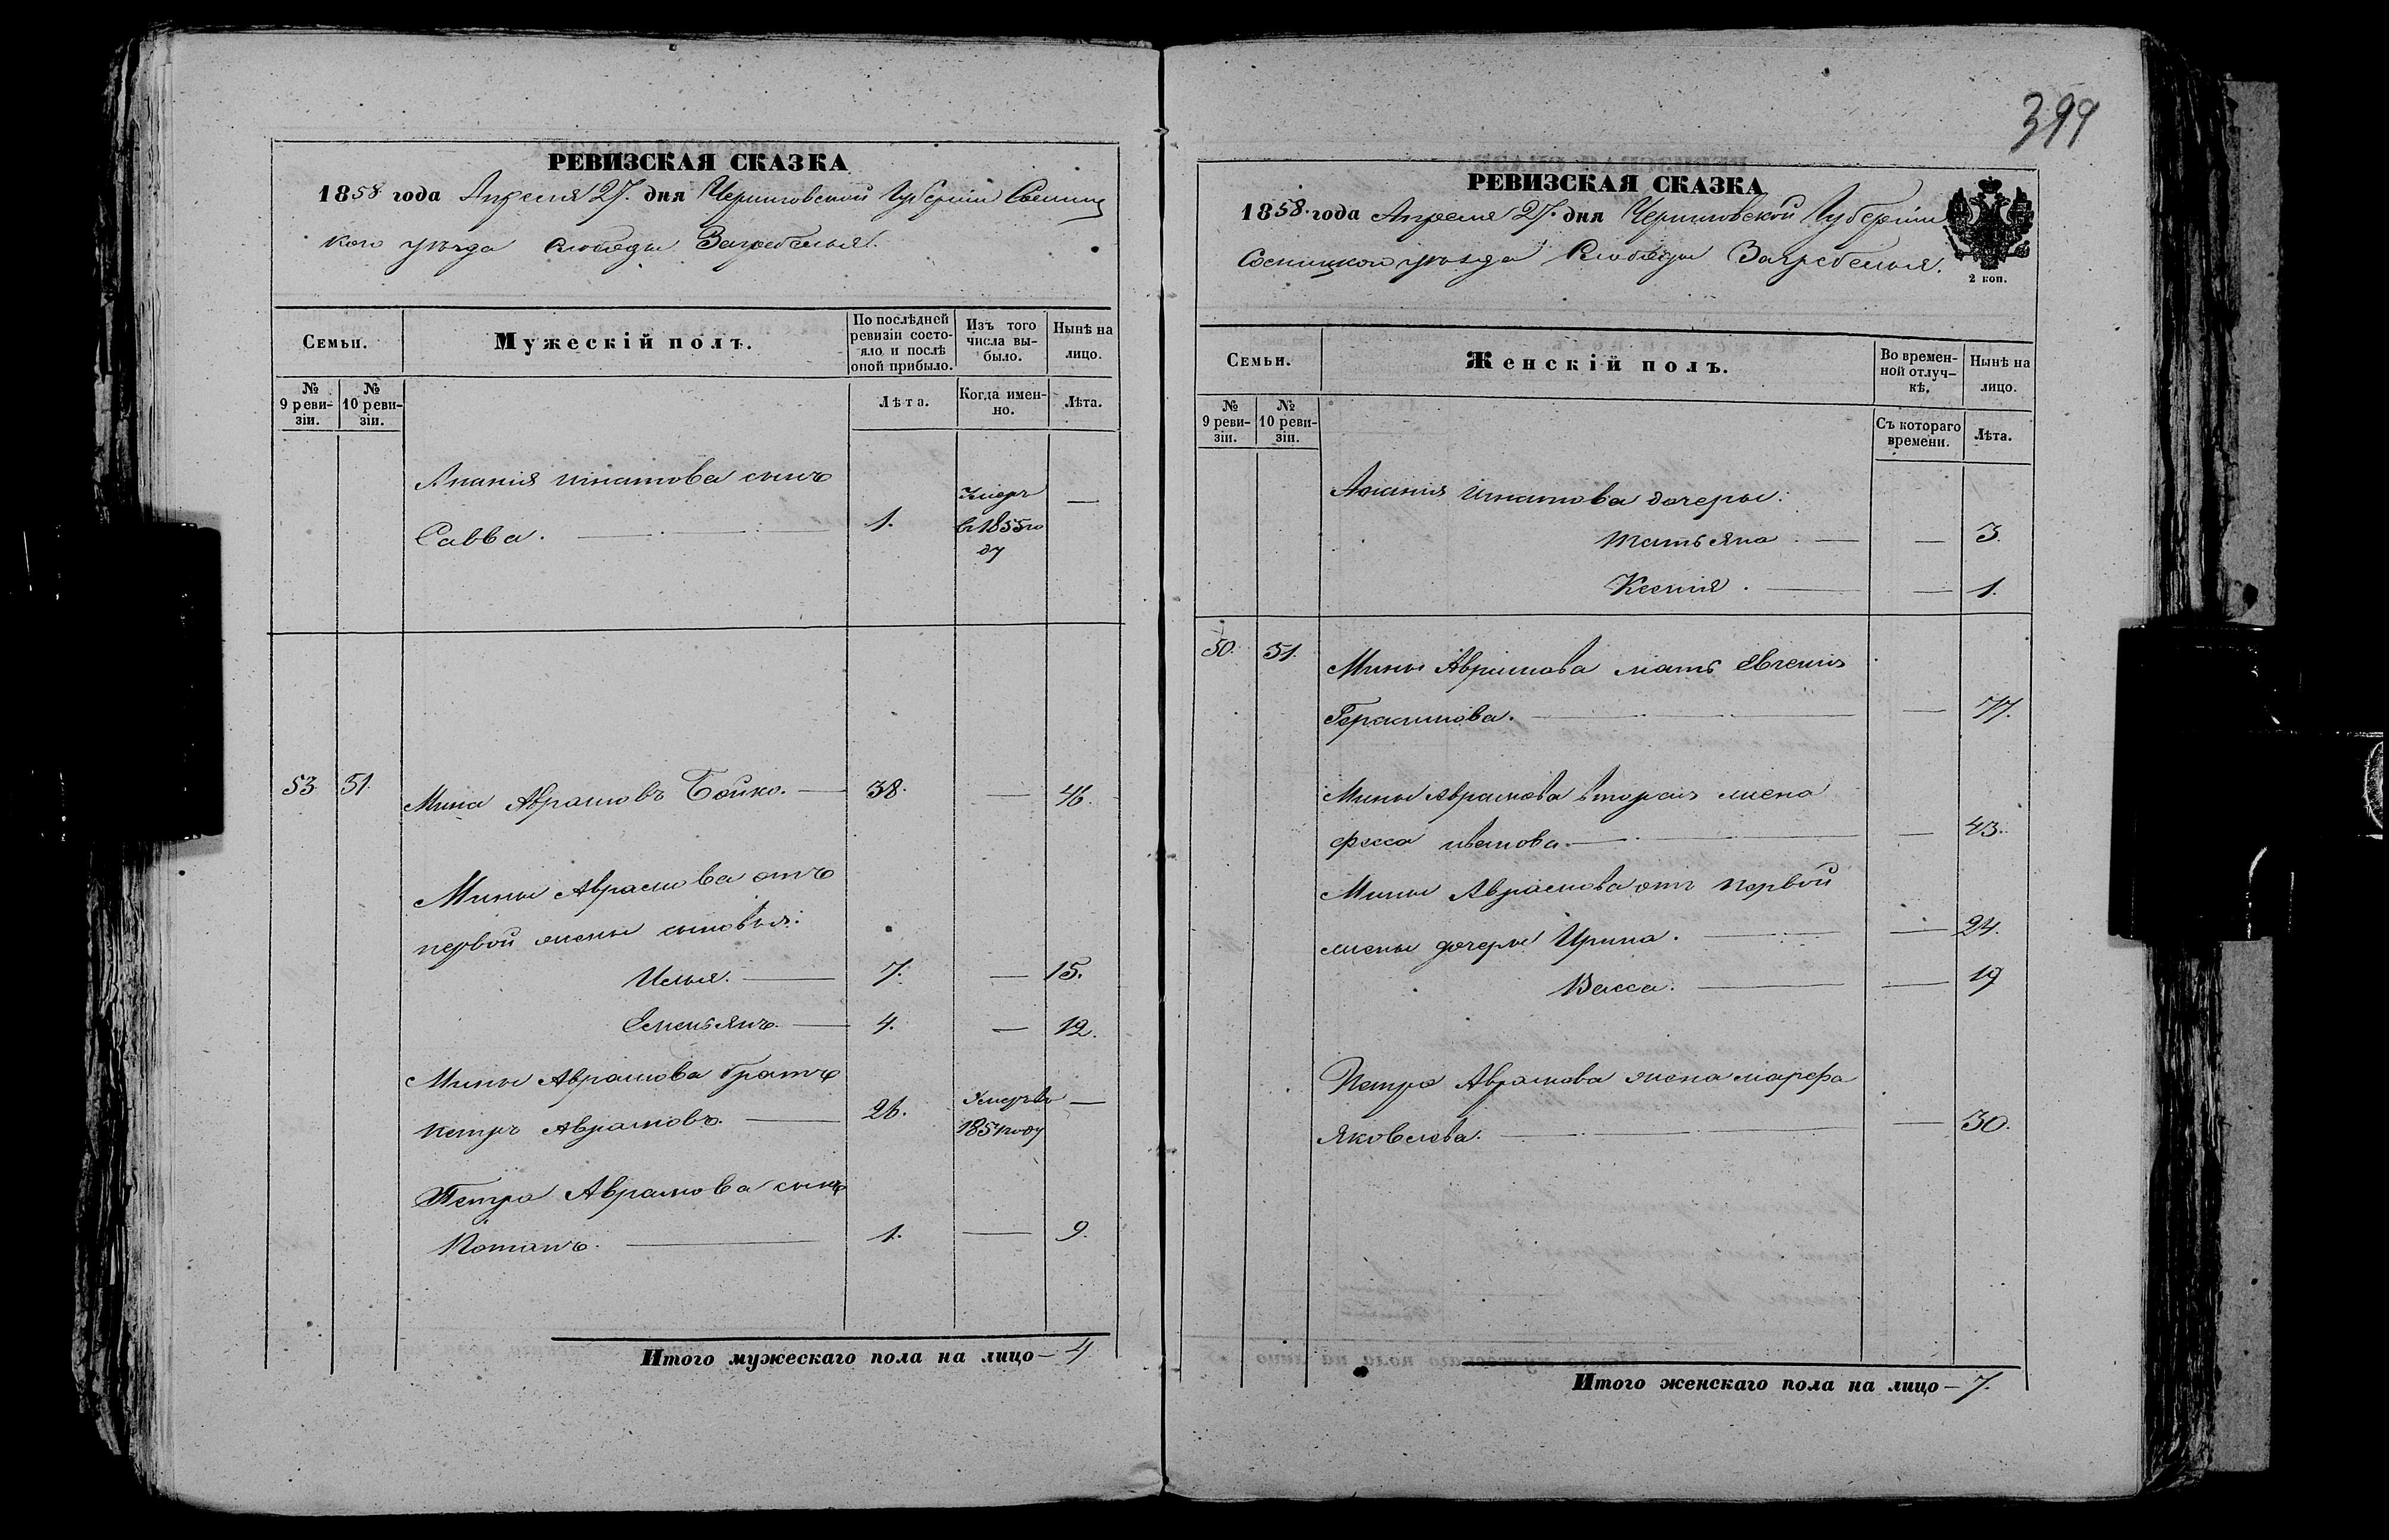 399
РЕВИЗСКАЯ СКАЗКА
1858 года Апреля 27. дня Черниговской Губерніи Сосниц
кого уѣзда Слободы Загребелья.
Семьи.
Мужескій полъ.
По послѣдней ревизіи состояло и послѣ оной прибыло.
Изъ того числа выбыло.
Нынѣ на лицо.
№ 9 ревизіи.
№ 10 ревизіи.
Лѣта.
Когда именно.
Лѣта.
Анания Игнатова сынъ
Савва. — 1. Умеръ в 1855 году —
53. 51. Мина Аврамовъ Бойко. — 38. — 46.
Мины Аврамова отъ
первой жены сыновья:
Илья. — 7. — 15.
Емельянъ. — 4. — 12.
Мины Аврамова братъ
Петръ Аврамовъ. — 26. Умеръ въ 1851 году —
Петра Аврамова сынъ
Потапъ. — 1. — 9.
Итого мужескаго пола на лицо — 4
РЕВИЗСКАЯ СКАЗКА
1858. года Апреля 27. дня Черниговской Губерніи
Сосницкого уѣзда Слободы Загребелья.
2 коп.
Семьи.
Женскій полъ.
Во временной отлучкѣ.
Нынѣ на лицо.
№ 9 ревизіи.
№ 10 ревизіи.
Съ котораго времени.
Лѣта.
Анания Игнатова дочеры:
Татьяна. — — 3.
Ксения. — — 1.
50. 51. Мины Аврамова мать Евгения
Герасимова. — — 77.
Мины Аврамова вторая жена
Фекла Иванова — — 43.
Мины Аврамова отъ первой
жены дочеры Ирина. — — 24.
Васса. — — 19
Петра Аврамова жена Марфа
Яковлева. — — 30.
Итого женскаго пола на лицо — 7.